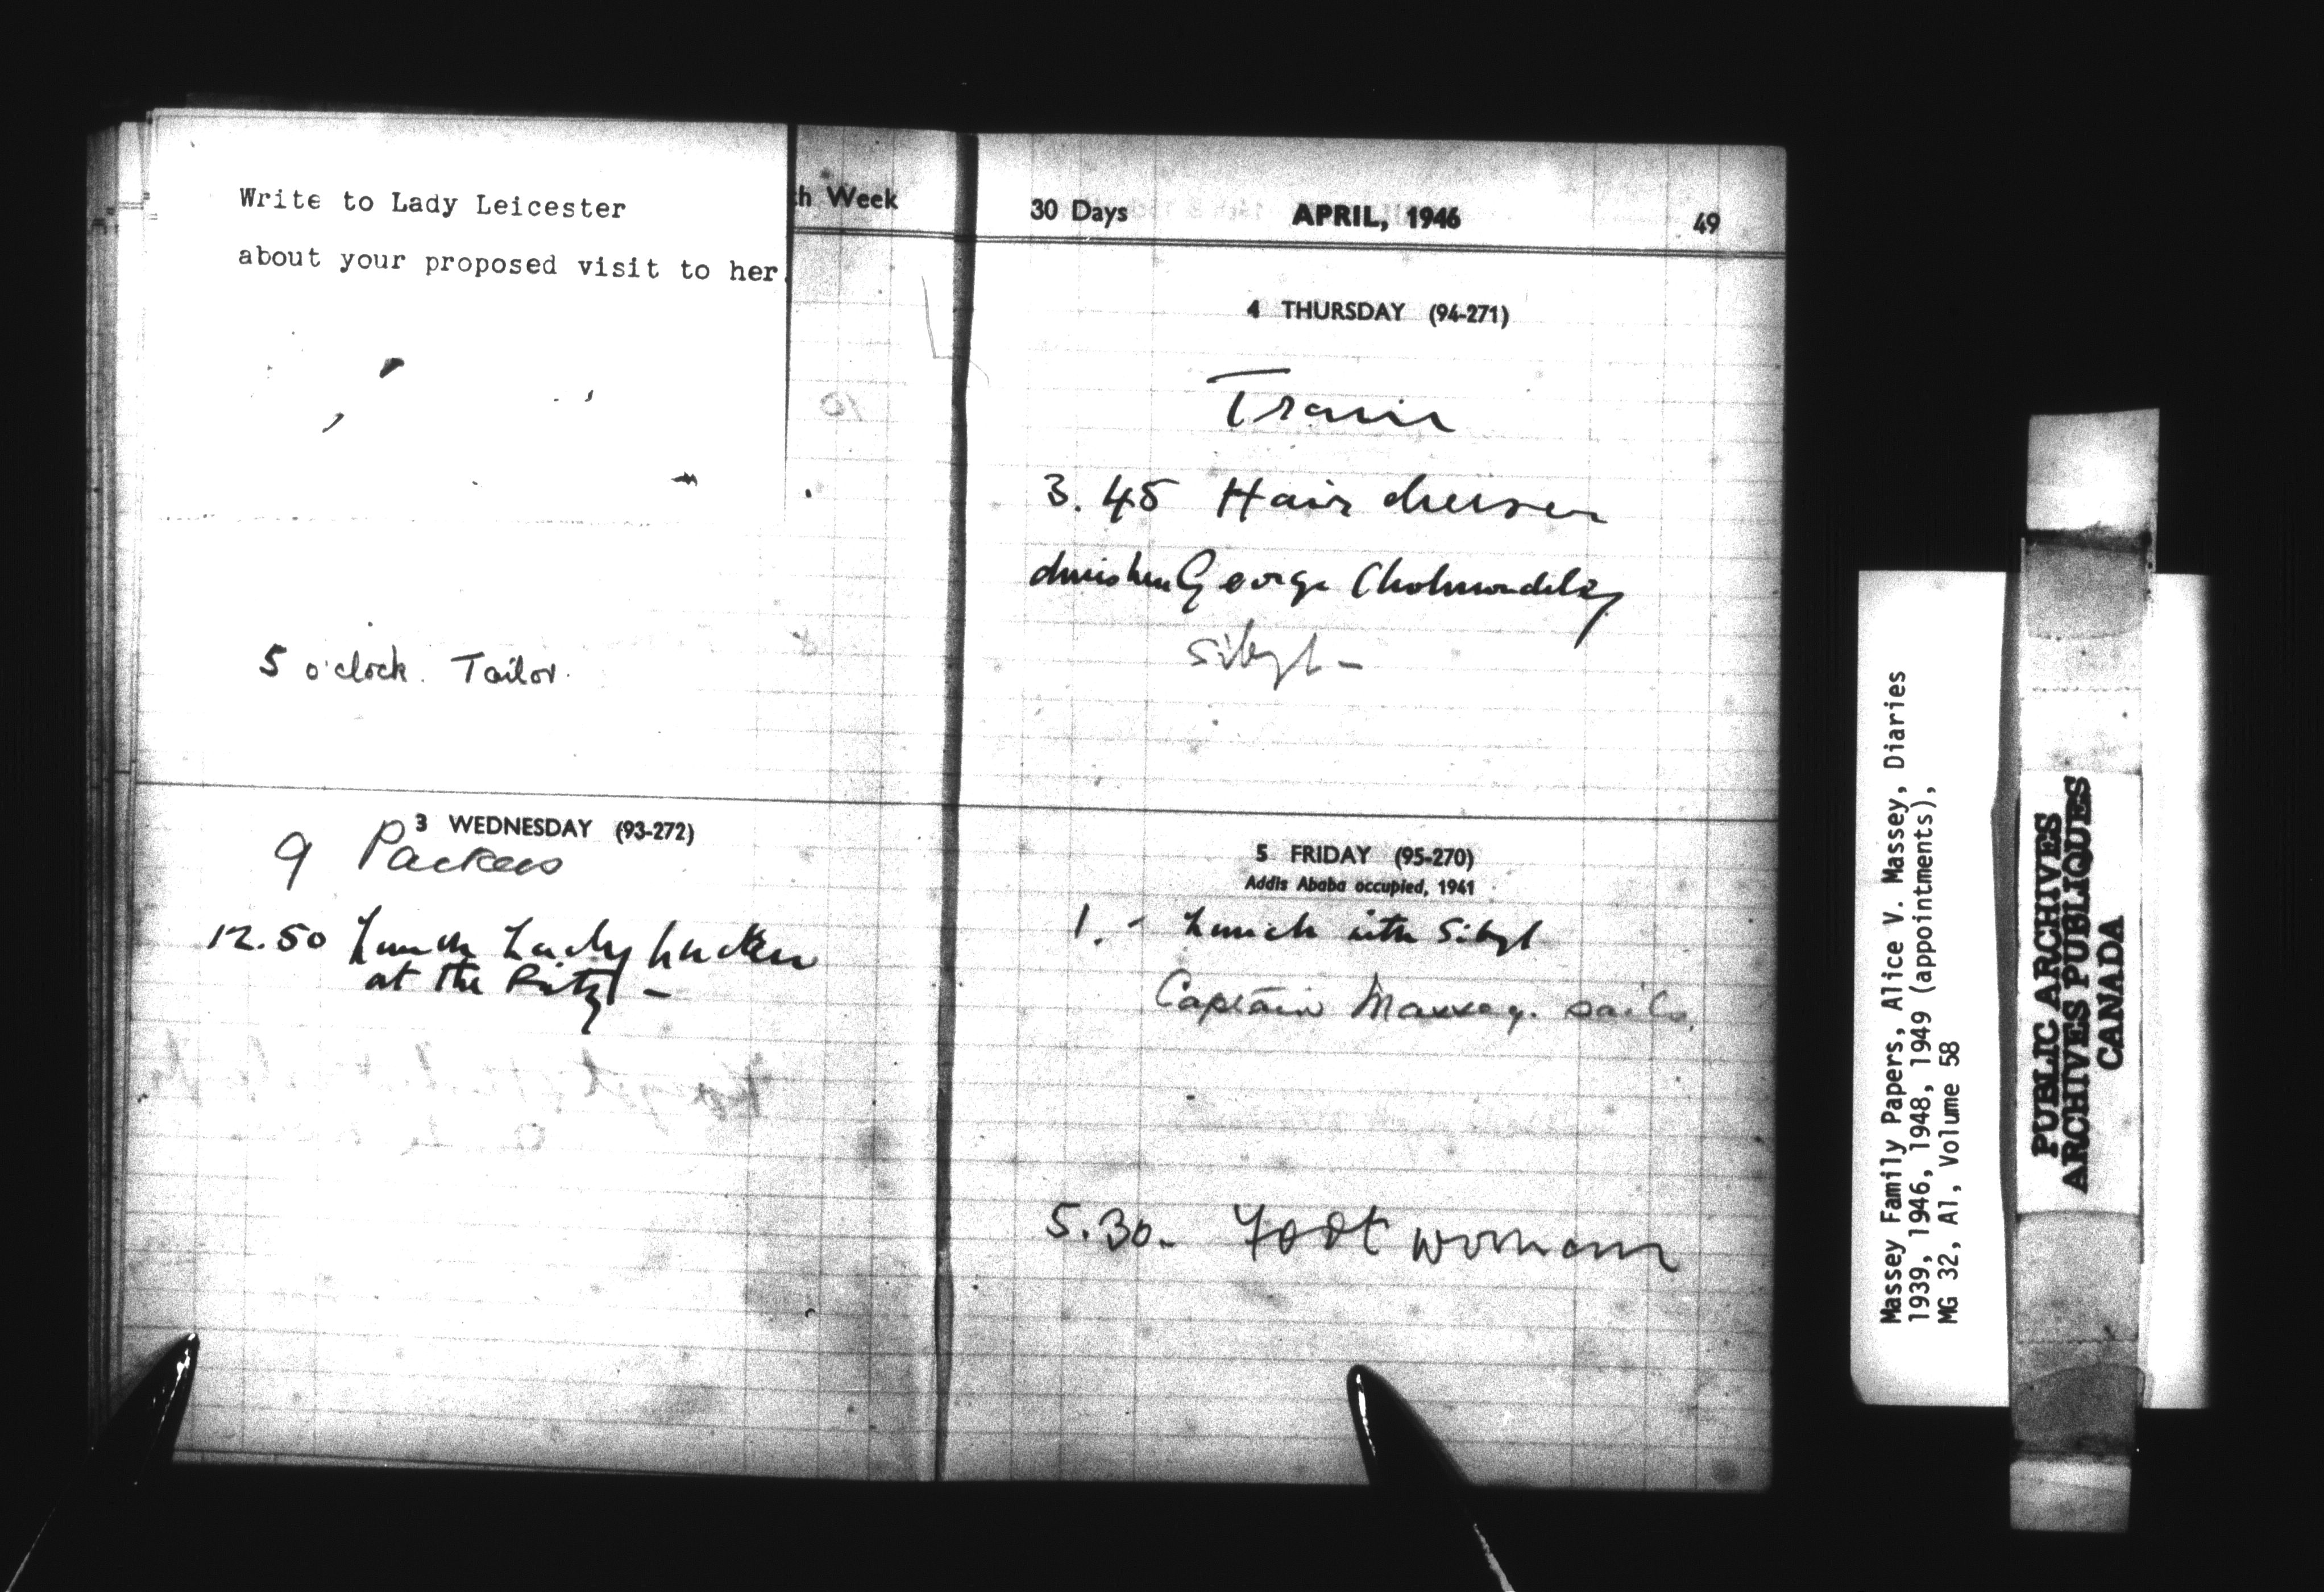 Write to Lady Leicester
about your proposed visit to her.
h Week
5 o'clock. Tailor.
3 WEDNESDAY (93-272)
9 Packers
12.50 Lunch Lady
at the Ritz -
30 Days APRIL, 1946 49
4 THURSDAY (94-271)
Train
3.45 Hair dresser
George Cholmondeley
Sibyl -
5 FRIDAY (95-270)
Addis Ababa occupied, 1941
1. - Lunch with Sibyl
Captain Massey. sails.
5.30. Foot woman
Massey Family Papers, Alice V. Massey, Diaries
1939, 1946, 1948, 1949 (appointments),
MG 32, A1, Volume 58
PUBLIC ARCHIVES
ARCHIVES PUBLIQUES
CANADA